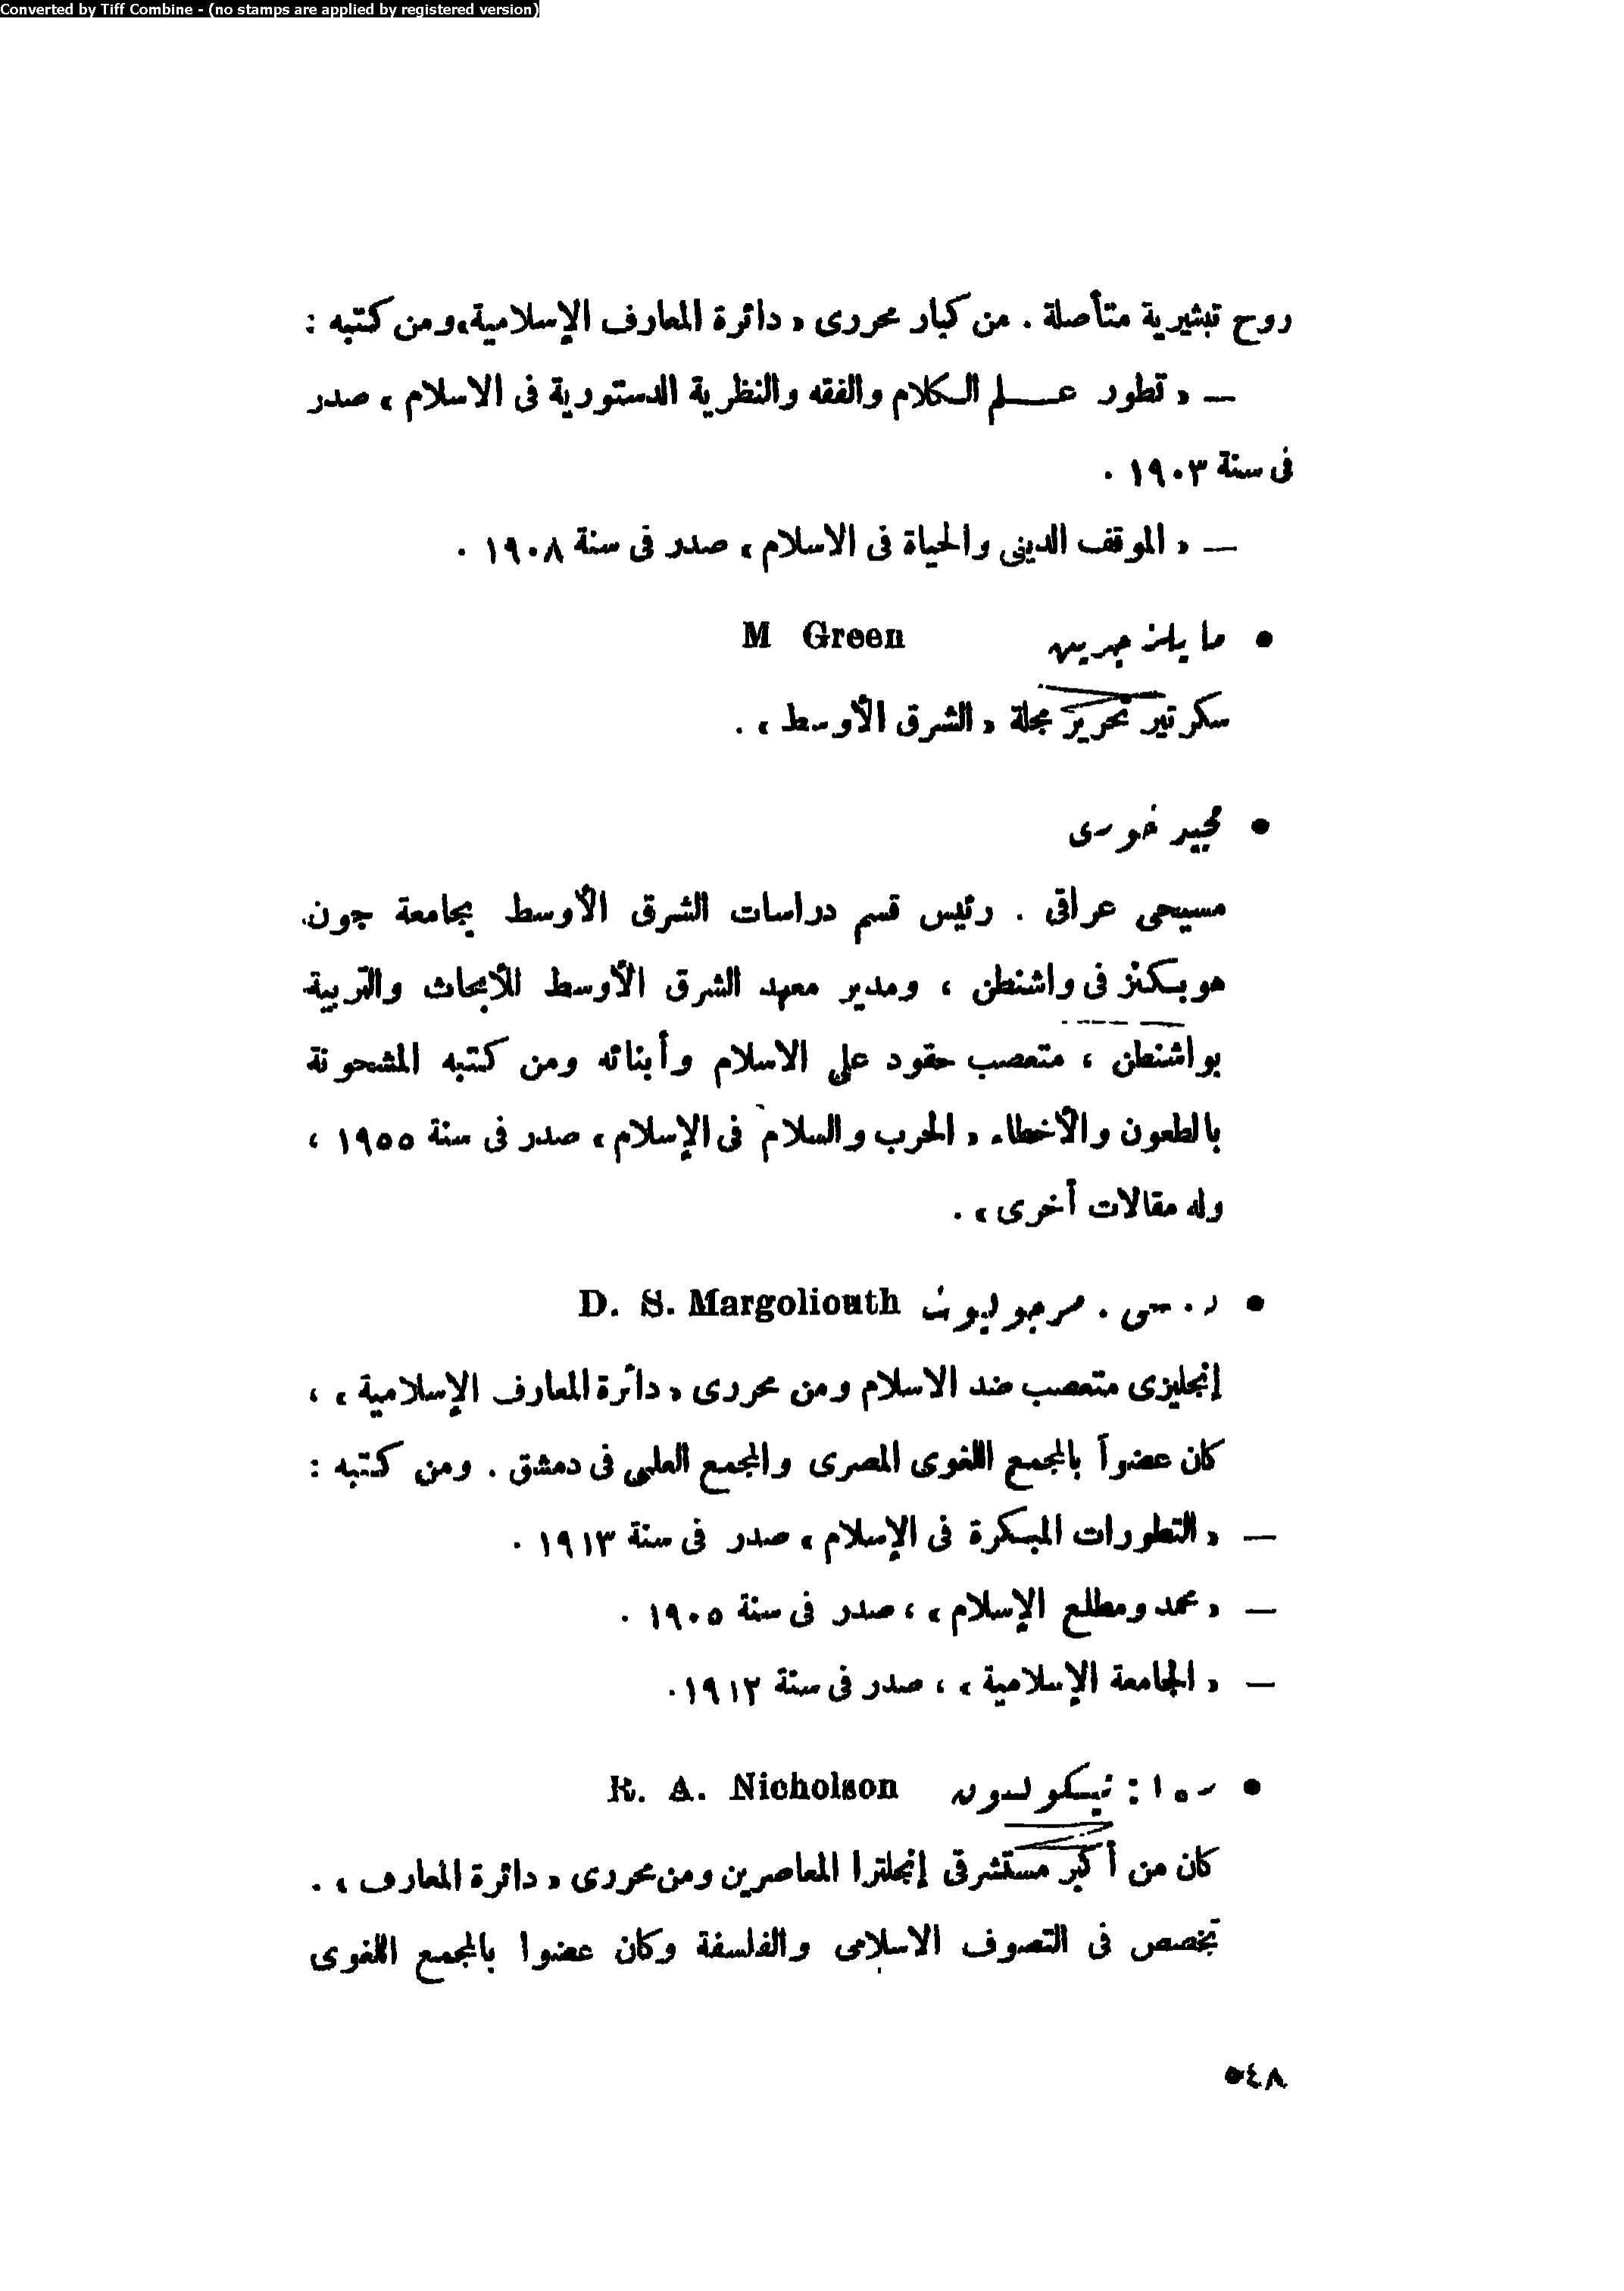 Converted by Tiff Combine - (no stamps are applied by registered version)
روح تبشيرية متأصلة . من كبار محررى « دائرة المعارف الإسلامية » ومن كتبه :
— « تطور عـــلم الكلام والفقه والنظرية الدستورية فى الاسلام » صدر
فى سنة ١٩٠٣ .
— « الموقف الدينى والحياة فى الاسلام » صدر فى سنة ١٩٠٨ .
• مايلز جرين M Green
سكرتير تحرير مجلة « الشرق الأوسط » .
• مجيد خورى
مسيحى عراقى . رئيس قسم دراسات الشرق الأوسط بجامعة جون
هوبكنز فى واشنطن ، ومدير معهد الشرق الأوسط للأبحاث والتربية
بواشنطن ، متعصب حقود على الاسلام وأبنائه ومن كتبه المشحونة
بالطعون والأخطاء « الحرب والسلام فى الإسلام » صدر فى سنة ١٩٥٥ ،
وله مقالات أخرى » .
• د . سى . مرجوليوث D. S. Margoliouth
إنجليزى متعصب ضد الاسلام ومن محررى « دائرة المعارف الإسلامية » ،
كان عضواً بالمجمع اللغوى المصرى والمجمع العلمى فى دمشق . ومن كتبه :
— « التطورات المبكرة فى الإسلام » صدر فى سنة ١٩١٣ .
— « محمد ومطلع الإسلام » ، صدر فى سنة ١٩٠٥ .
— « الجامعة الإسلامية » ، صدر فى سنة ١٩١٢ .
• ر . ا : نيكولسون R. A. Nicholson
كان من أكبر مستشرقى إنجلترا المعاصرين ومن محررى « دائرة المعارف » .
تخصص فى التصوف الاسلامى والفلسفة وكان عضوا بالمجمع اللغوى
٥٤٨